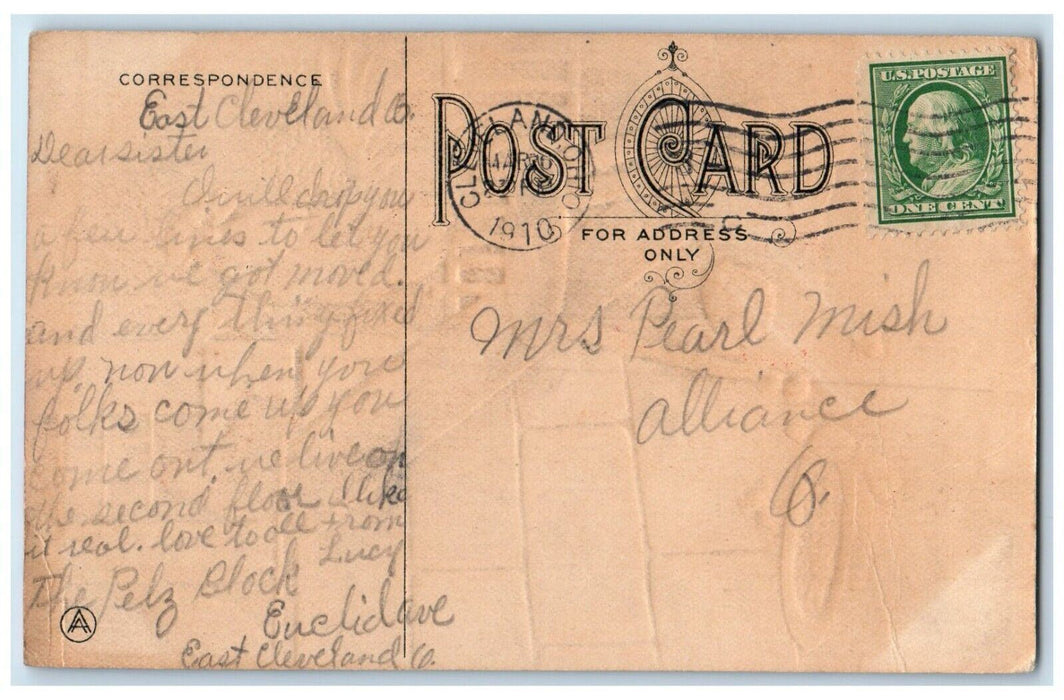 CORRESPONDENCE
East Cleveland O.
Dear sister
I will drop you
a few lines to let you
know we got moved.
and every thing fixed
up, now when you
folks come up you
come out, we live on
the second floor I like
it real. love to all from
Lucy
The Pelz Block
Euclid ave
East Cleveland O.
POST CARD
CLEVELAND OHIO
MAR
1910
U.S. POSTAGE
ONE CENT
FOR ADDRESS
ONLY
Mrs Pearl Mish
Alliance
O.